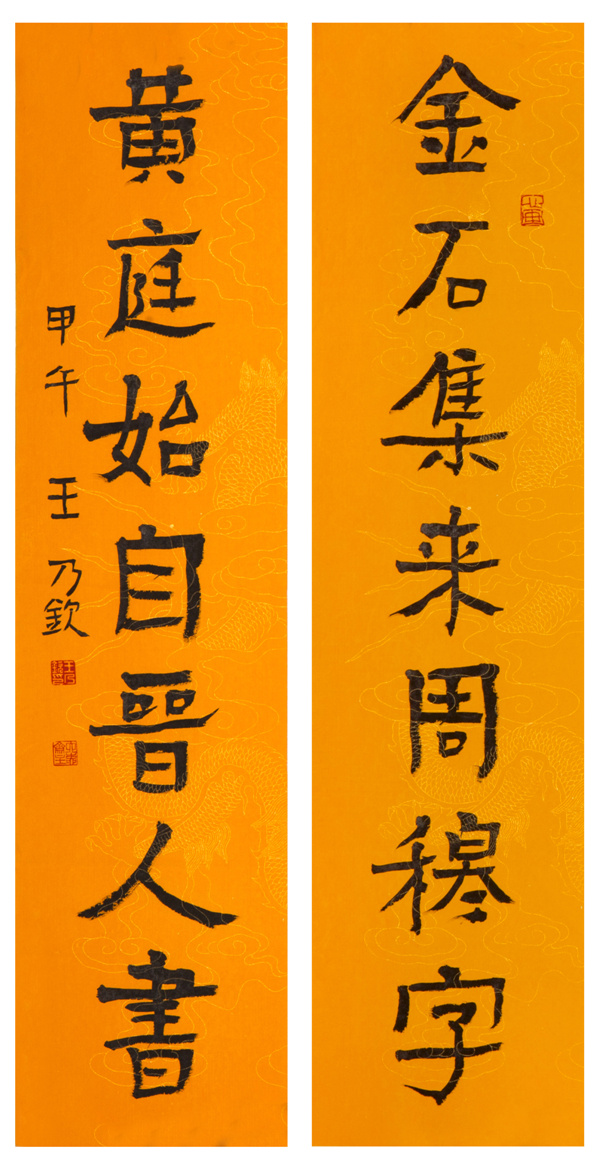 金石集来周穆字
黄庭始自晉人書
甲午 王乃欽